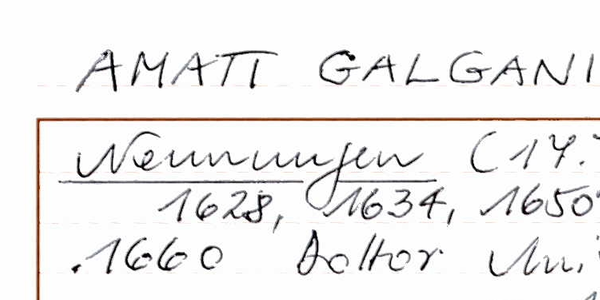 AMATI GALGANI
Nennungen (17.
1628, 1634, 1650
.1660 Doktor Uni